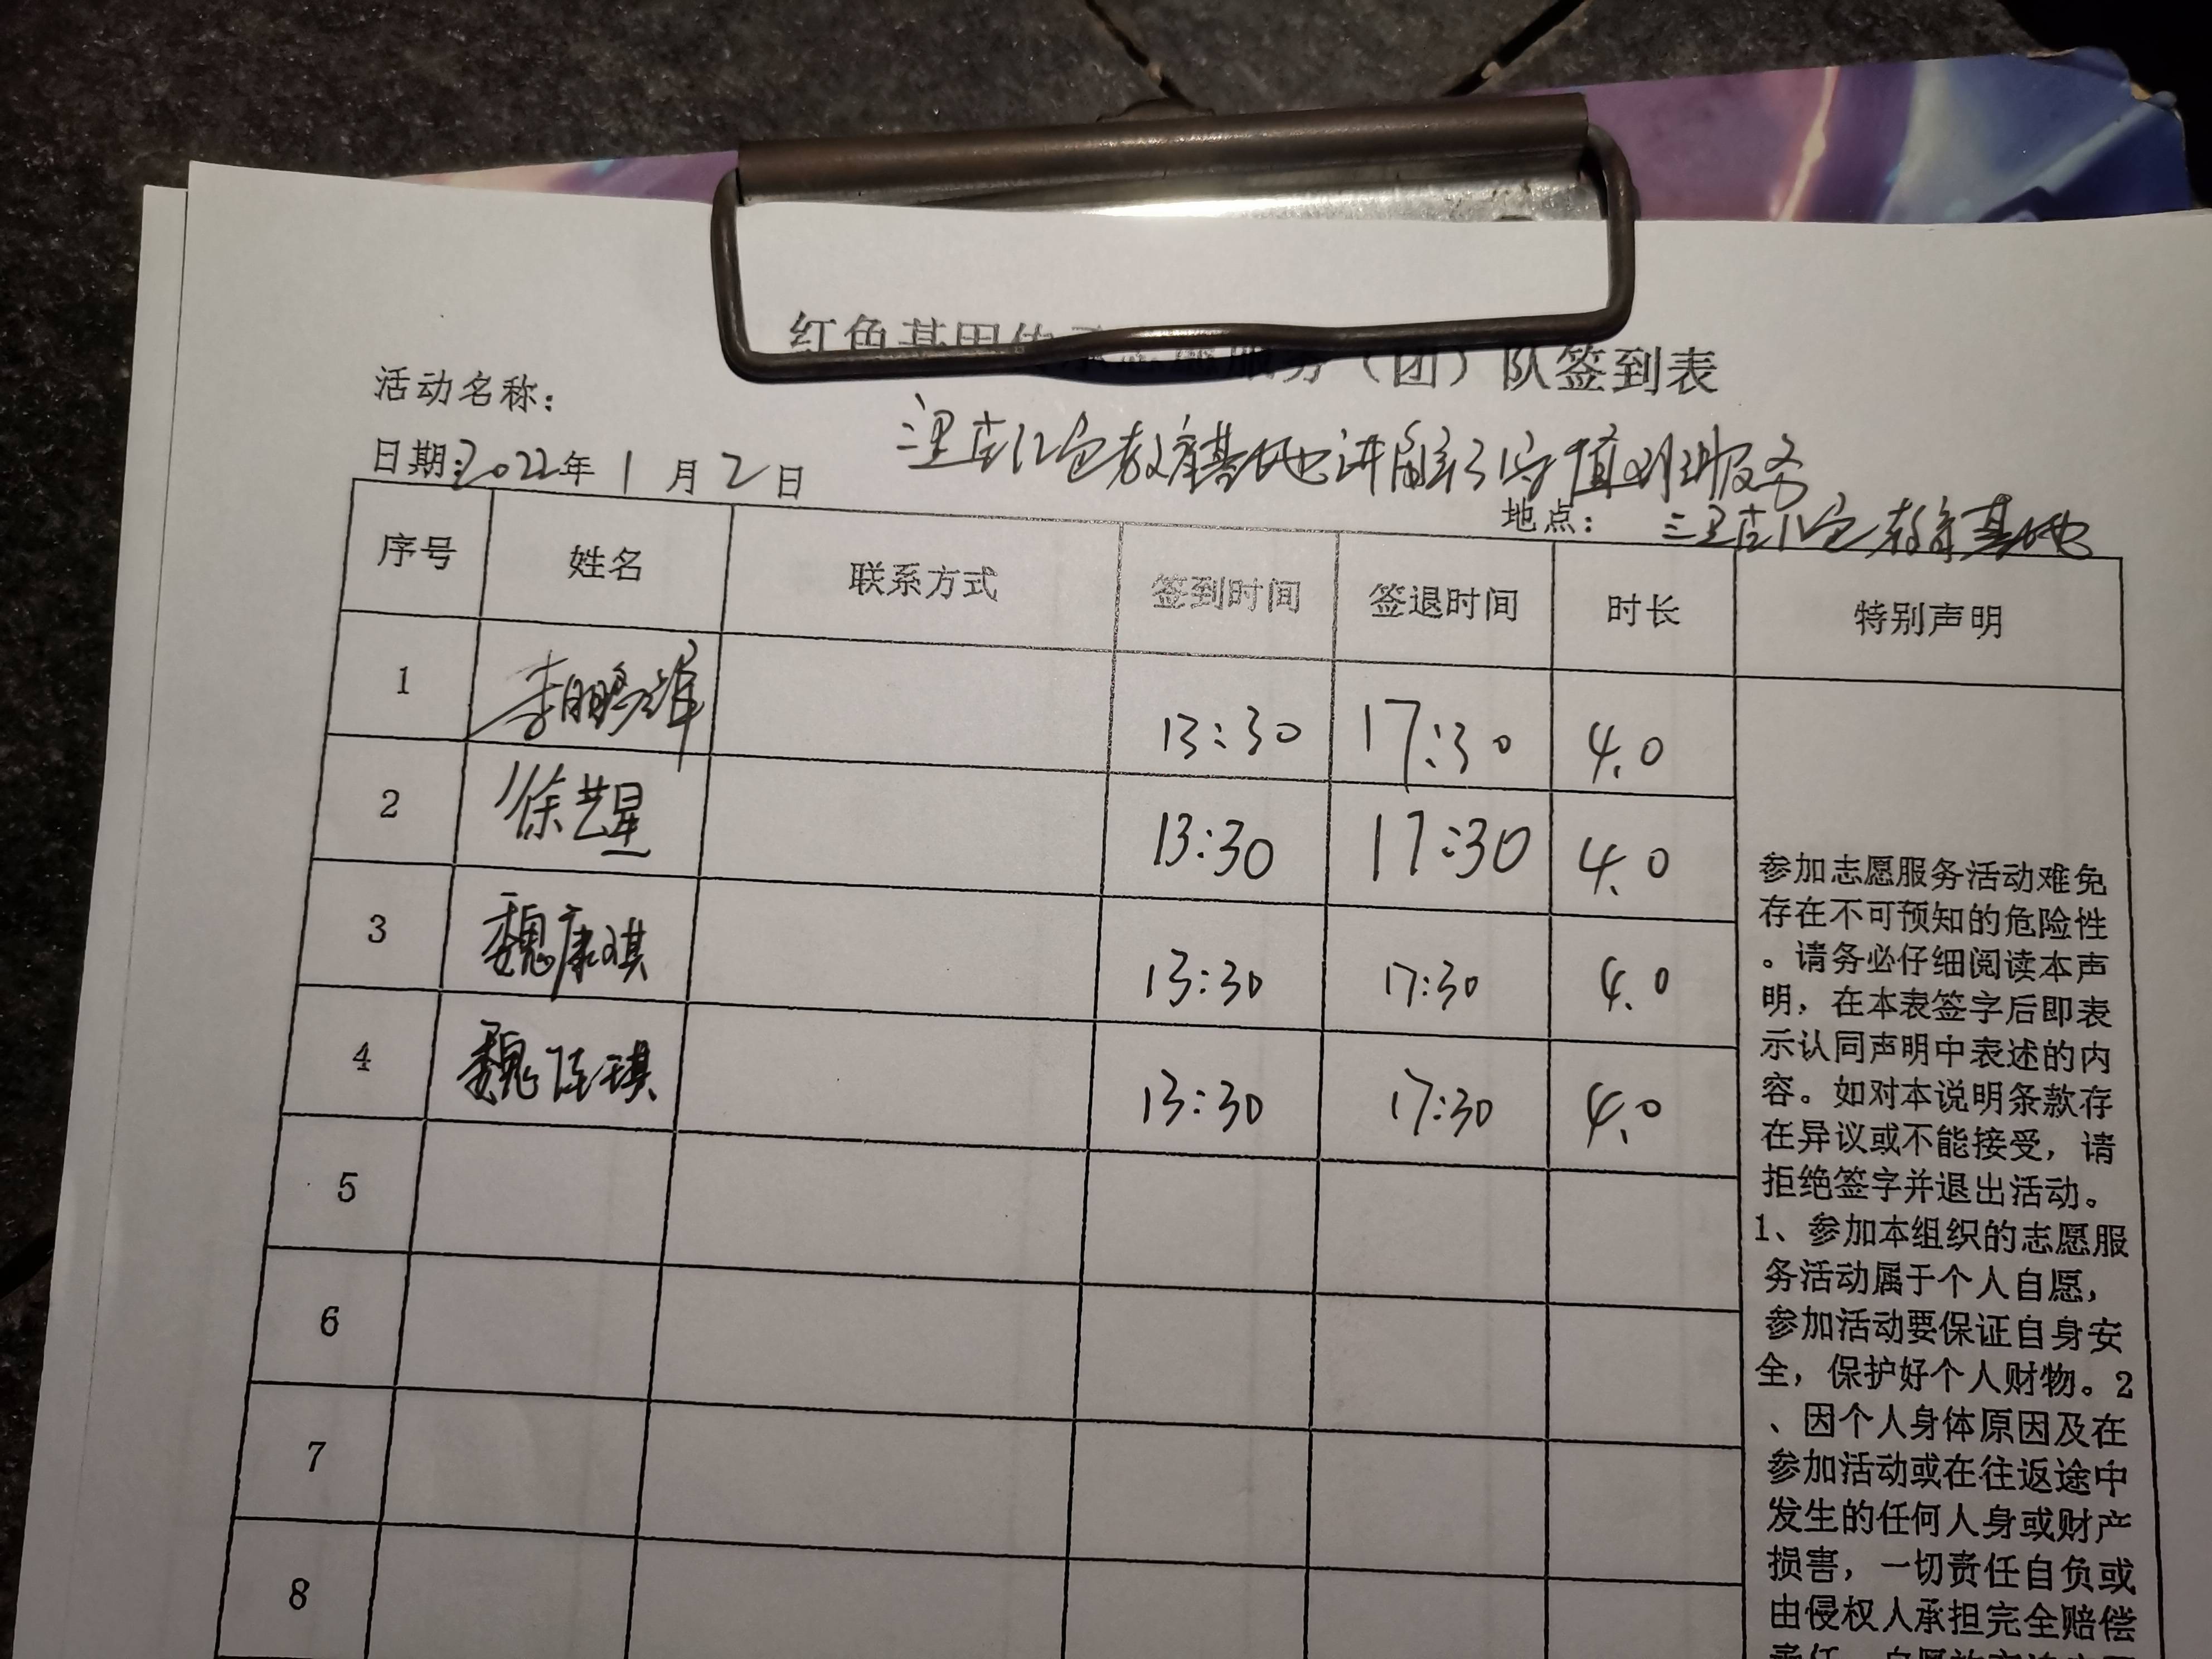 红色基因传承志愿服务（团）队签到表
活动名称：
三里店红色教育基地讲解引导值班服务
日期：2022年1月2日
地点：三里店红色教育基地
序号 姓名 联系方式 签到时间 签退时间 时长 特别声明
1 李鹏 13:30 17:30 4.0
2 徐艺星 13:30 17:30 4.0
3 魏康琪 13:30 17:30 4.0
4 魏 琪 13:30 17:30 4.0
5
6
7
8
参加志愿服务活动难免
存在不可预知的危险性
。请务必仔细阅读本声
明，在本表签字后即表
示认同声明中表述的内
容。如对本说明条款存
在异议或不能接受，请
拒绝签字并退出活动。
1、参加本组织的志愿服
务活动属于个人自愿，
参加活动要保证自身安
全，保护好个人财物。2
、因个人身体原因及在
参加活动或在往返途中
发生的任何人身或财产
损害，一切责任自负或
由侵权人承担完全赔偿